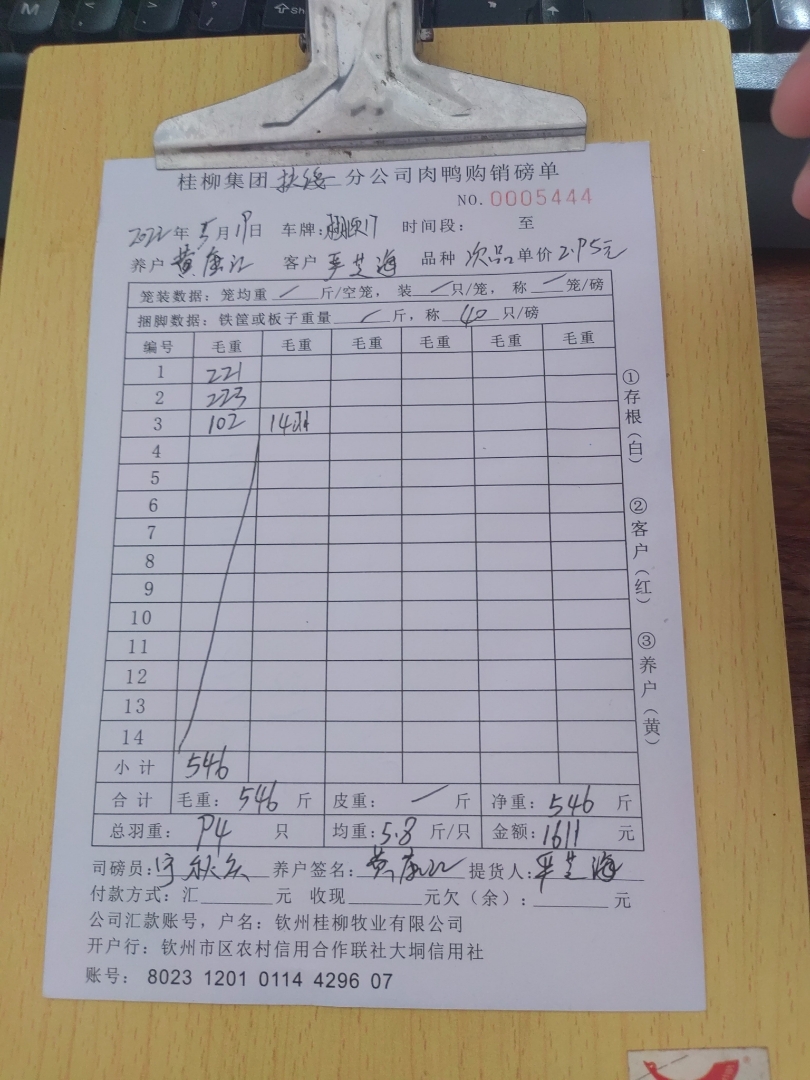 桂柳集团 扶绥 分公司肉鸭购销磅单
NO. 0005444
2022年5月19日 车牌: 时间段: 至
养户 黄康江 客户 严芝海 品种 次品 单价 2.95元
笼装数据: 笼均重 / 斤/空笼, 装 / 只/笼, 称 / 笼/磅
捆脚数据: 铁筐或板子重量 / 斤, 称 40 只/磅
编号 毛重 毛重 毛重 毛重 毛重 毛重
1 221
2 223
3 102 14羽
4
5
6
7
8
9
10
11
12
13
14
小计 546
合计 毛重: 546 斤 皮重: / 斤 净重: 546 斤
总羽重: 94 只 均重: 5.8 斤/只 金额: 1611 元
司磅员: 养户签名: 黄康江 提货人: 严芝海
付款方式: 汇 元 收现 元欠(余): 元
公司汇款账号, 户名: 钦州桂柳牧业有限公司
开户行: 钦州市区农村信用合作联社大垌信用社
账号: 8023 1201 0114 4296 07
①存根(白)
②客户(红)
③养户(黄)
M
Sh